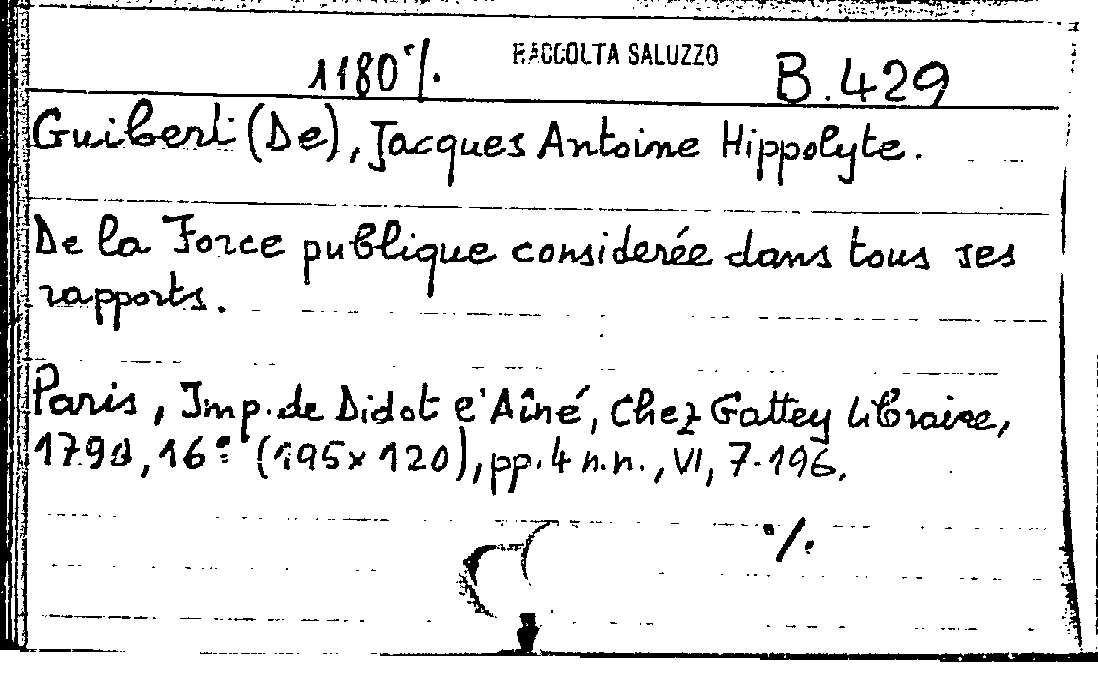 1180 ./. RACCOLTA SALUZZO B.429
Guibert (De), Jacques Antoine Hippolyte.
De la Force publique considerée dans tous ses
rapports.
Paris, Imp. de Didot l'Aîné, Chez Gattey Libraire,
1790, 16° (195x120), pp. 4 n.n., VI, 7-196.
./.